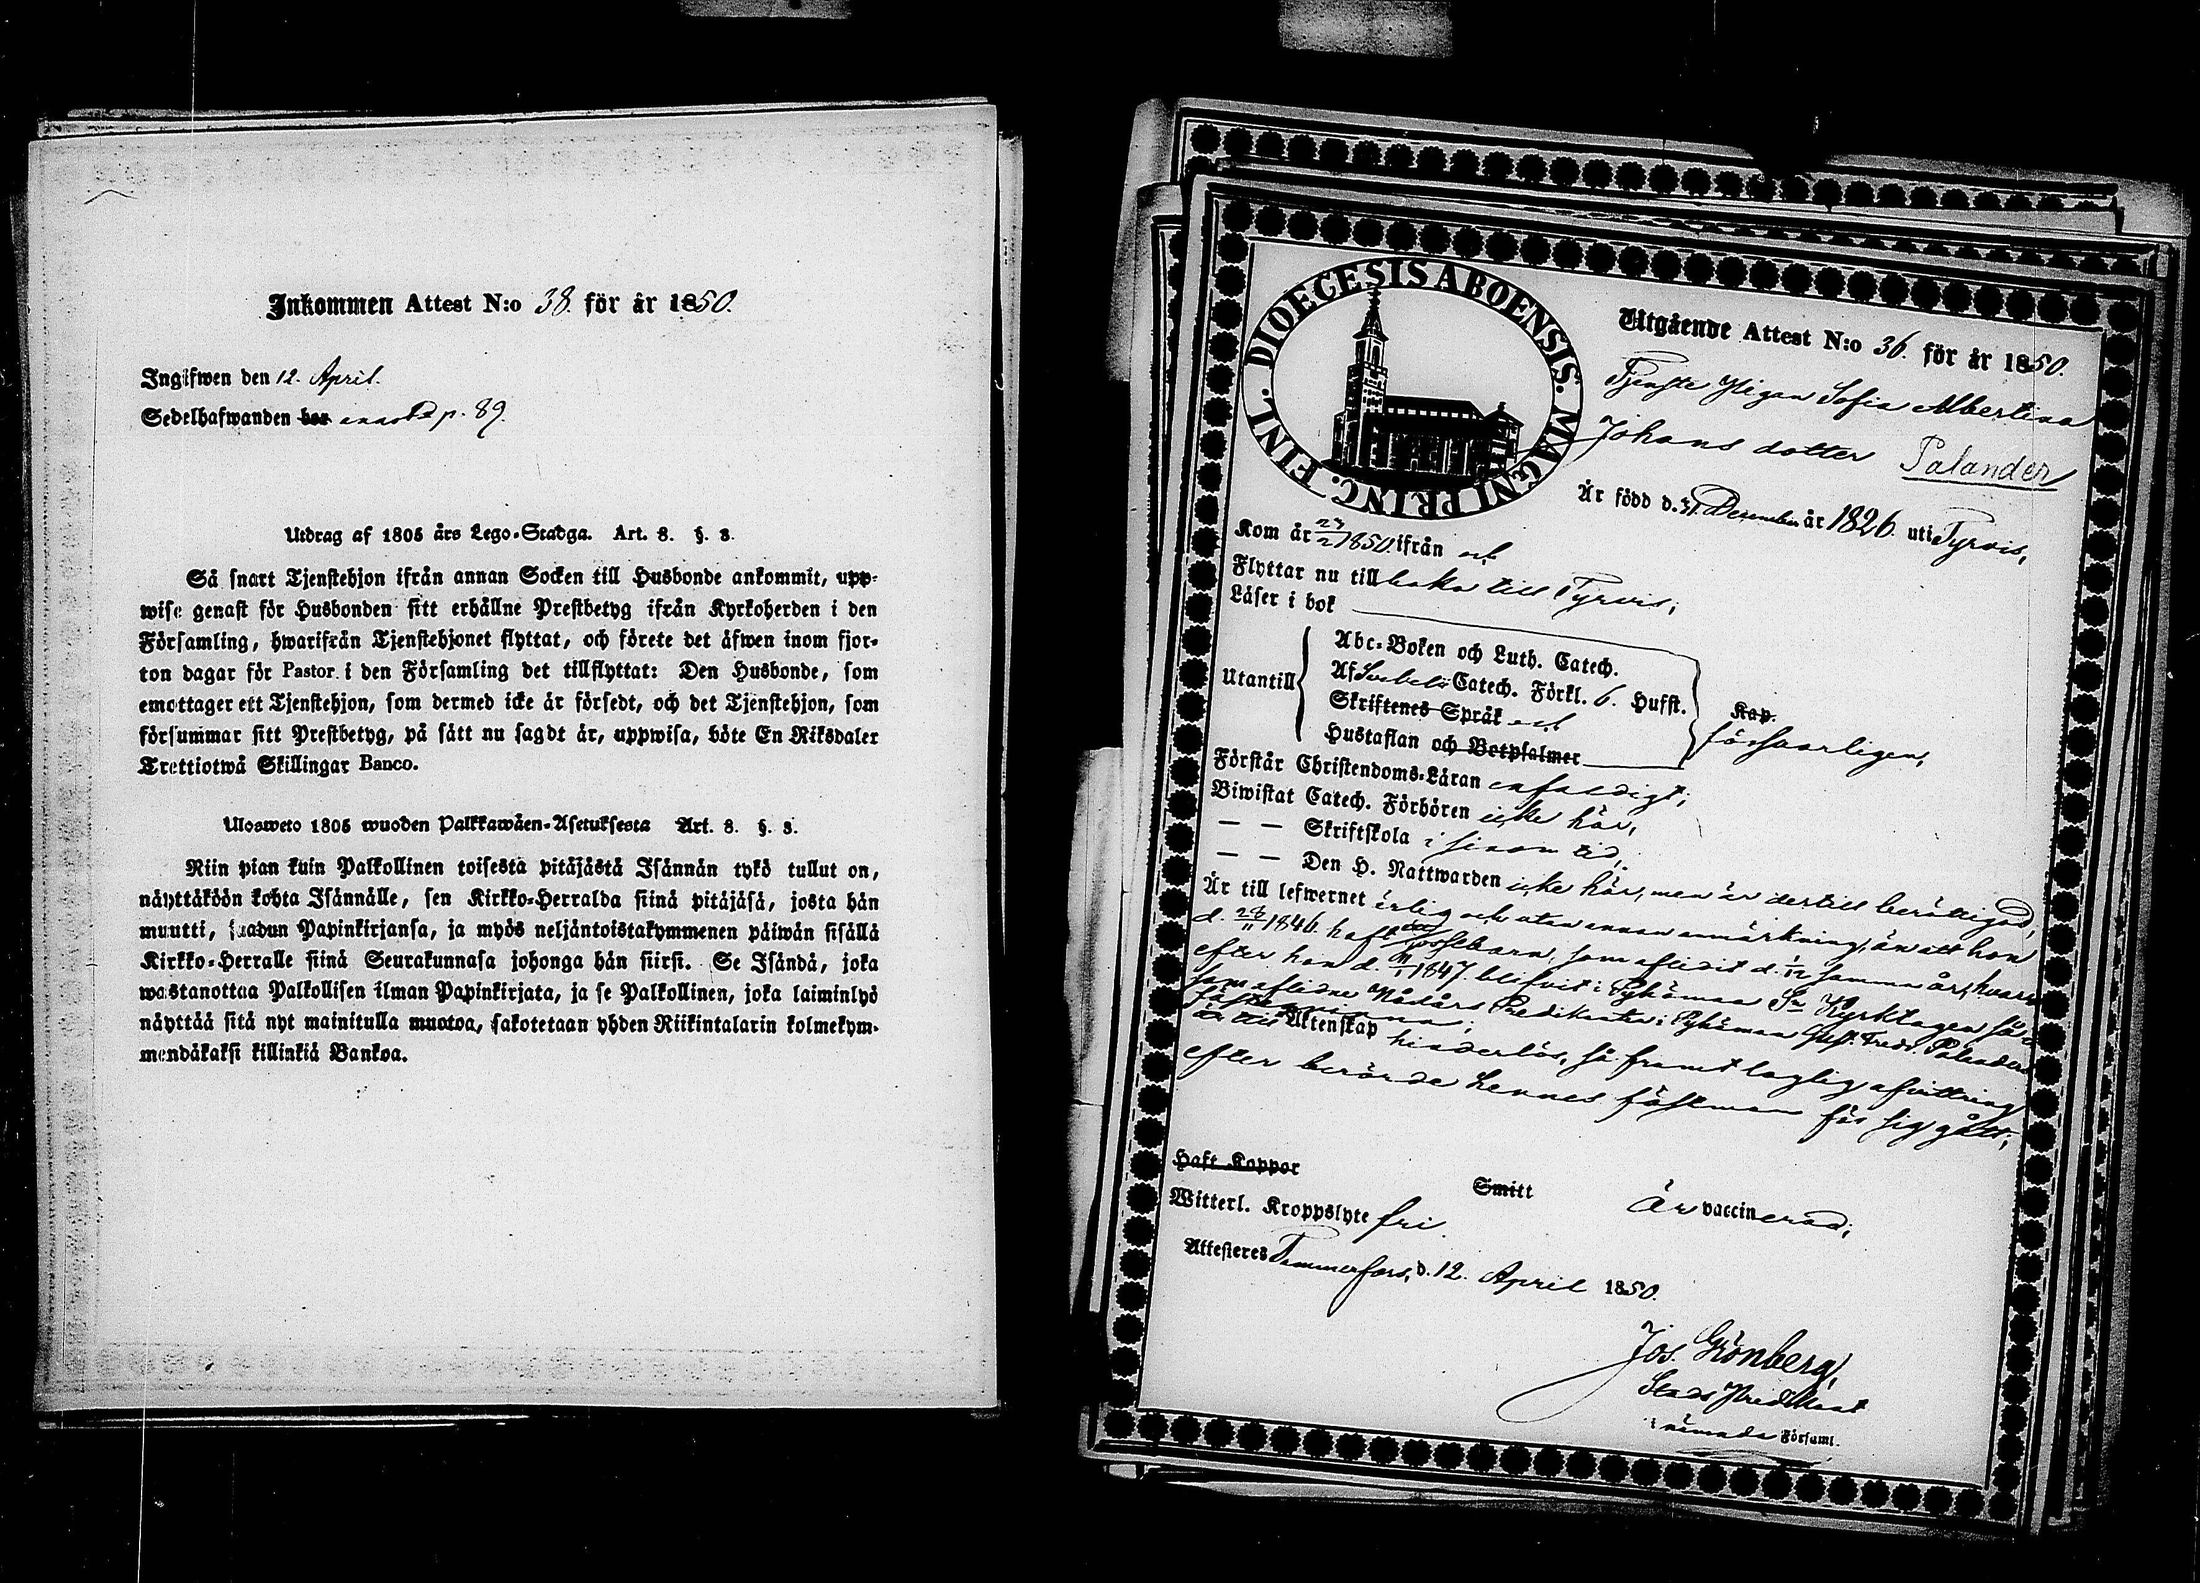 Inkommen Attest N:o 38. för år 1850.
Ingifwen den 12. April.
Sedelhafwanden bor p. 89.
Utdrag af 1805 års Lego-Stadga. Art. 8. §. 8.
Så snart Tjenstehjon ifrån annan Socken till Husbonde ankommit, upp-
wise genast för Husbonden sitt erhållne Prestbetyg ifrån Kyrkoherden i den
Församling, hwarifrån Tjenstehjonet flyttat, och förete det äfwen inom fjor-
ton dagar för Pastor i den Församling det tillflyttat: Den Husbonde, som
emottager ett Tjenstehjon, som dermed icke är försedt, och det Tjenstehjon, som
försummar sitt Prestbetyg, på sätt nu sagdt är, uppwisa, böte En Riksdaler
Trettiotwå Skillingar Banco.
Ulosweto 1805 wuoden Palkkawäen-Asetuksesta Art. 8. §. 8.
Niin pian kuin Palkollinen toisesta pitäjästä Isännän tykö tullut on,
näyttäköön kohta Isännälle, sen Kirkko-Herralda siinä pitäjäsä, josta hän
muutti, saadun Papinkirjansa, ja myös neljäntoistakymmenen päiwän sisällä
Kirkko-Herralle siinä Seurakunnasa johonga hän siirsi. Se Isändä, joka
wastanottaa Palkollisen ilman Papinkirjata, ja se Palkollinen, joka laiminlyö
näyttää sitä nyt mainitulla muotoa, sakotetaan yhden Riikintalarin kolmekym-
mendäkaksi killinkiä Bankoa.
DIOECESIS ABOENSIS. MAGNI PRINC. FINL.
Utgående Attest N:o 36. för år 1850.
Tjenste Pigan Sofia Albertina
Johans dotter Palander
Är född d. 31 December år 1826. uti Tyrvis,
Kom år 27/2 1850. ifrån och
Flyttar nu tillbaka till Tyrvis;
Läser i bok
Utantill
Abc-Boken och Luth. Catech.
Af Svebelii Catech. Förkl. 6. Hufst.
Skriftenes Språk och
Hustaflan och Botpsalmer
Kap.
försvarligen,
Förstår Christendoms-Läran enfaldigt;
Biwistat Catech. Förhören icke här,
— — Skriftskola i sinom tid,
— — Den H. Nattwarden icke här, men är dertill berättigad,
Är till lefwernet ärlig och utan annan anmärkning, än att hon
d. 28/11 1846. haft ett gossebarn, som aflidit d. 1/12 samma år, hvar-
efter hon d. 1847. blifvit i Pyhämaa Sn Kyrktagen så-
som aflidne Nådårs Predikanten i Pyhämaa Gust. Fredr. Palanders
fästeqvinna;
är till Äktenskap hinderlös, så framt laglig afvittring
efter berörde hennes fästeman för sig gått;
Haft Koppor
Smitt
Är vaccinerad;
Witterl. Kroppslyte fri.
Attesteres Tammerfors, d. 12. April 1850.
Jos. Grönberg,
Stads Predikant
i nämnde Församl.